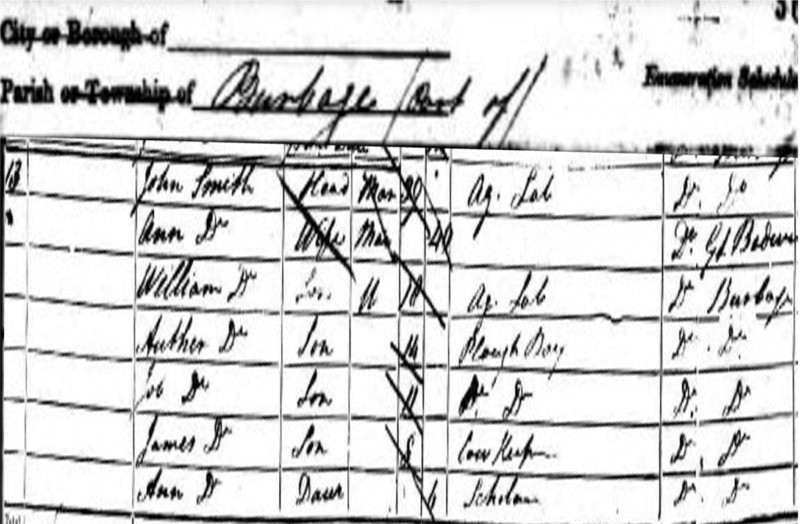 City or Borough of
Parish or Township of Burbage (Part of)
Enumeration Schedule
13 John Smith Head Mar 39 Ag. Lab Do. Do
Ann Do Wife Mar 40 Do. Gt Bedwin
William Do Son U 18 Ag. Lab Do Burbage
Auther Do Son 14 Plough Boy Do. Do.
Job Do Son 11 Do. Do Do. Do
James Do Son 8 Cow Keeper Do. Do
Ann Do Daur 4 Scholar Do. Do